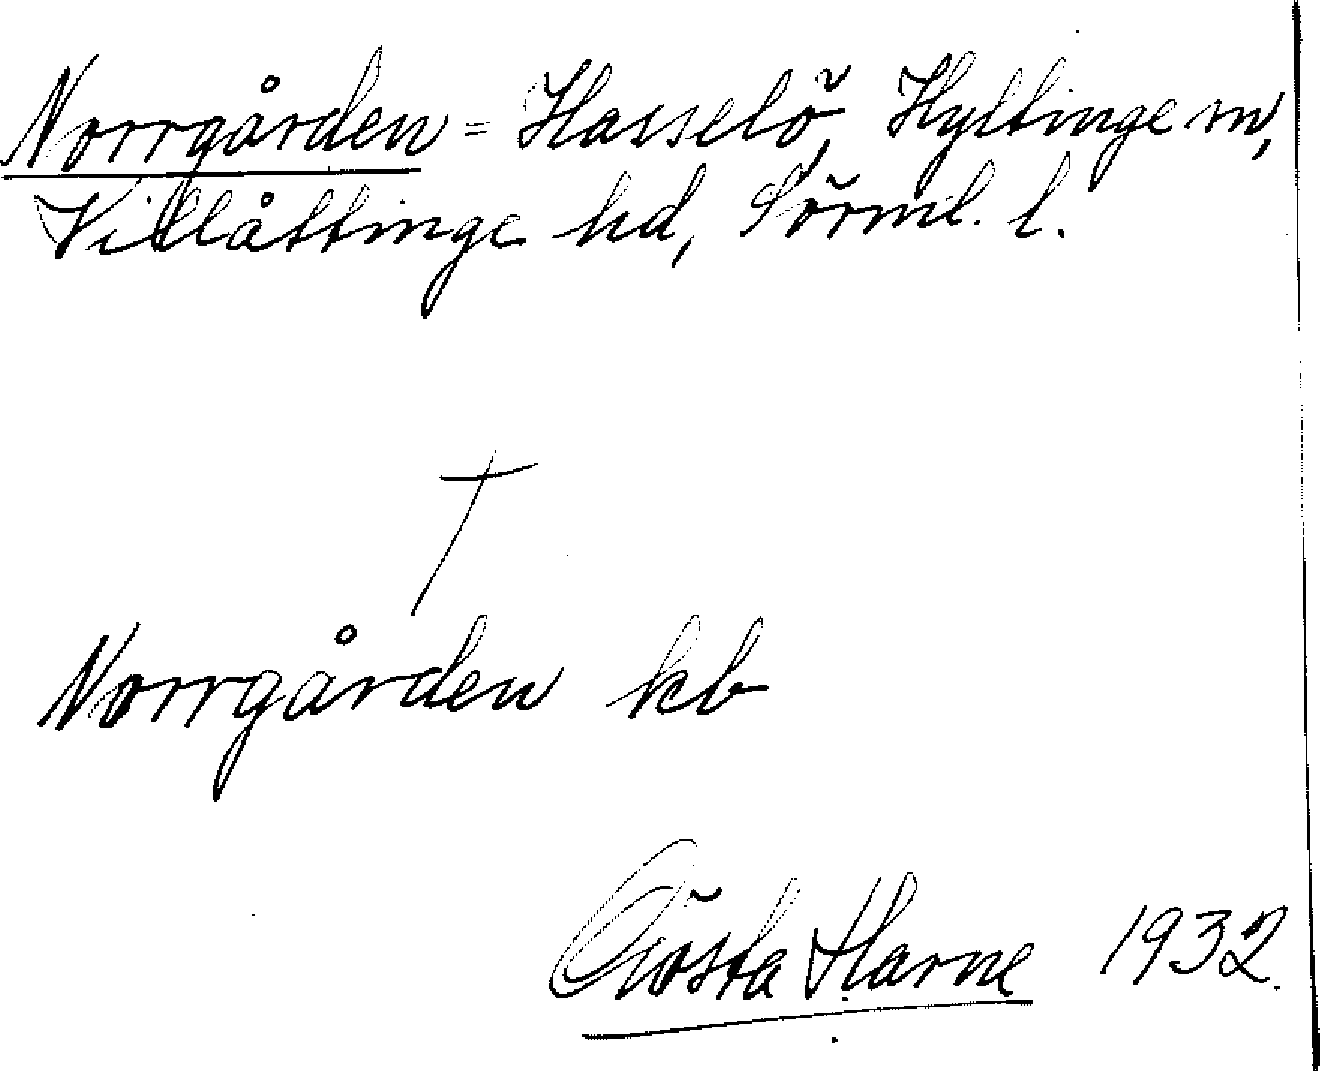 Norrgården = Hasselö, Hyltinge sn,
Villåttinge hd, Sörml. l.
†
Norrgården kb
Gösta Harne 1932.